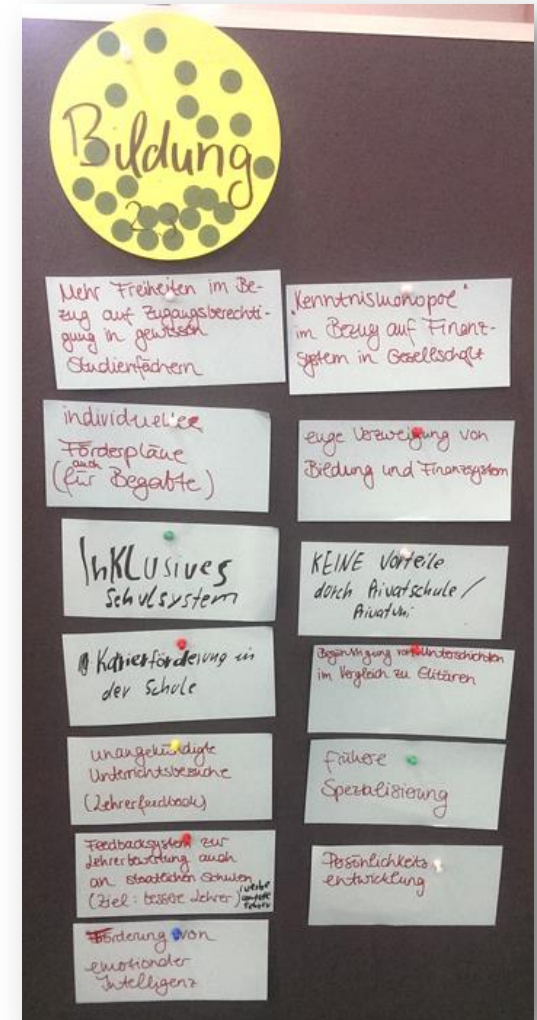 Bildung
23
Mehr Freiheiten im Be-
zug auf Zugangsberechti-
gung in gewissen
Studienfächern
individuelle
Förderpläne
auch
(für Begabte)
Inklusives
Schulsystem
Karriereförderung in
der Schule
unangekündigte
Unterrichtsbesuche
(Lehrerfeedback)
Feedbacksystem zur
Lehrerbewertung auch
an staatlichen Schulen
(Ziel: bessere Lehrer)
Förderung von
emotionaler
Intelligenz
"Kenntnismonopol"
im Bezug auf Finanz-
system in Gesellschaft
enge Verzweigung von
Bildung und Finanzsystem
KEINE Vorteile
durch Privatschule/
Privatuni
Begünstigung von Unterschichten
im Vergleich zu Elitären
frühere
Spezialisierung
Persönlichkeits
entwicklung